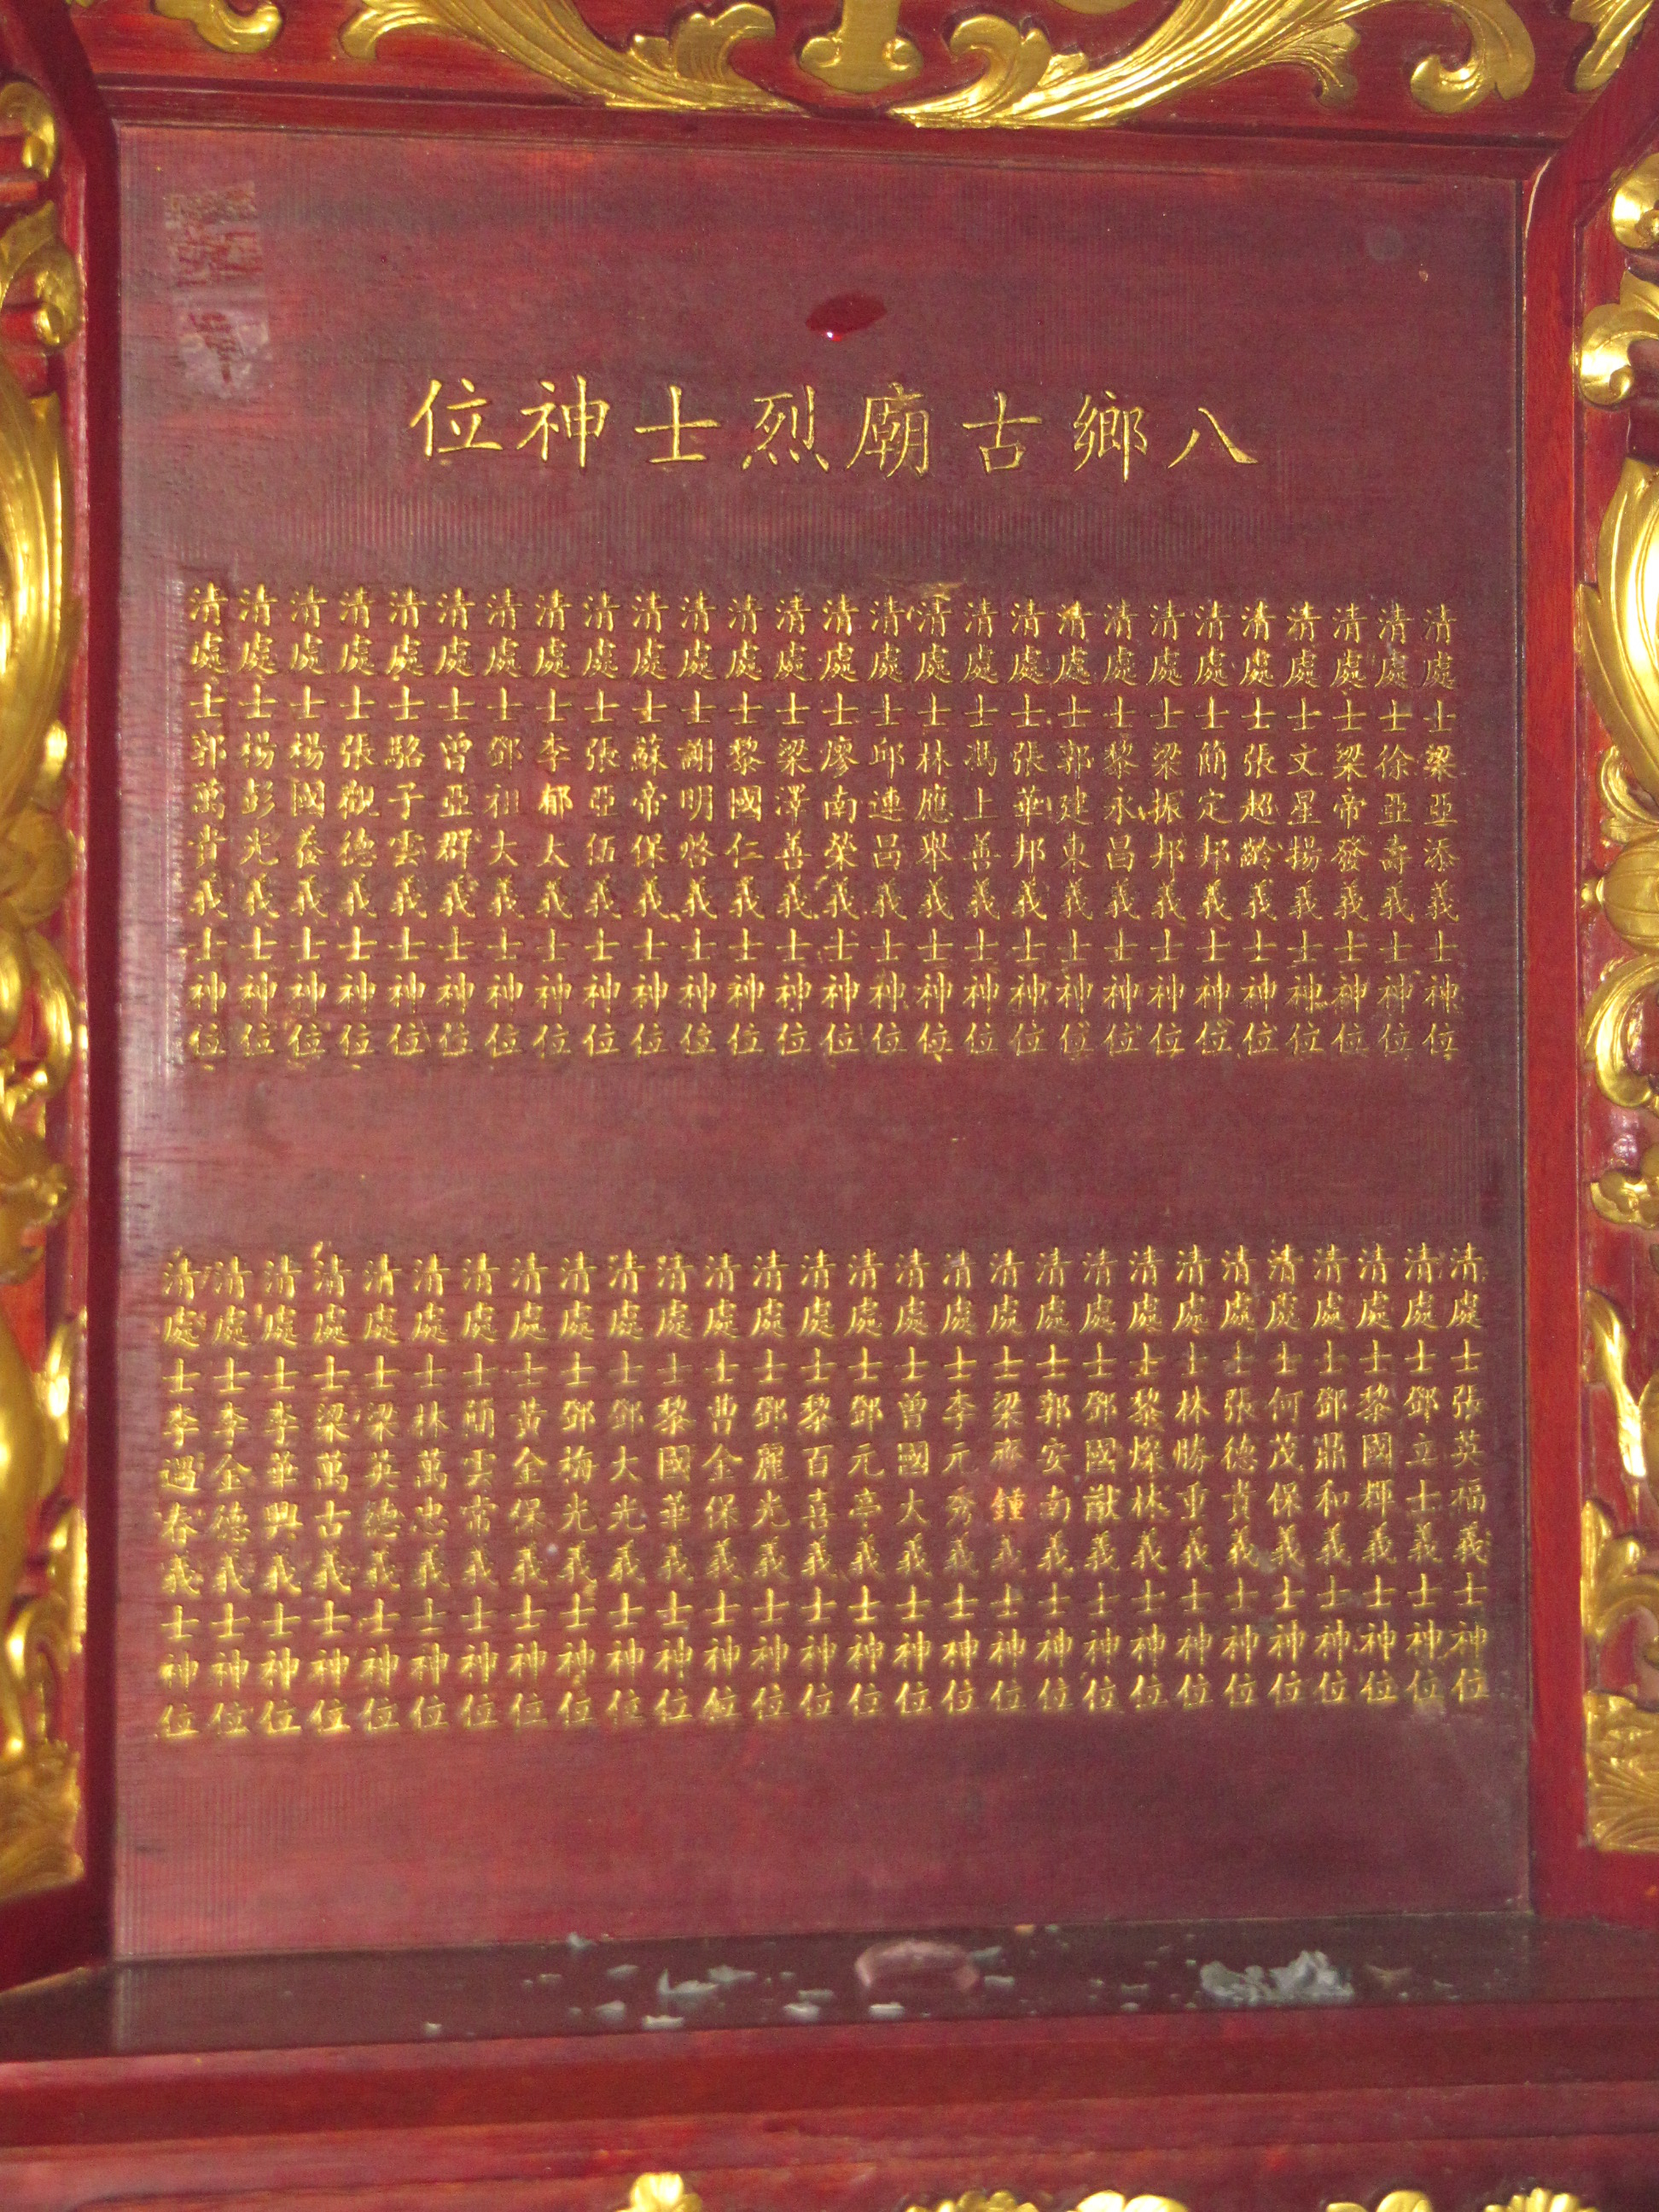 八鄉古廟烈士神位
清處士梁亞添義士神位
清處士徐亞壽義士神位
清處士梁帝發義士神位
清處士文星揚義士神位
清處士張超齡義士神位
清處士簡定邦義士神位
清處士梁振邦義士神位
清處士黎永昌義士神位
清處士郭建東義士神位
清處士張華邦義士神位
清處士馮上善義士神位
清處士林應舉義士神位
清處士邱連昌義士神位
清處士廖南榮義士神位
清處士梁澤善義士神位
清處士黎國仁義士神位
清處士謝明啓義士神位
清處士蘇帝保義士神位
清處士張亞伍義士神位
清處士李郁太義士神位
清處士鄧祖大義士神位
清處士曾亞群義士神位
清處士駱子雲義士神位
清處士張觀德義士神位
清處士楊國養義士神位
清處士楊彭光義士神位
清處士郭萬貴義士神位
清處士張英福義士神位
清處士鄧立士義士神位
清處士黎國郡義士神位
清處士鄧鼎和義士神位
清處士何茂保義士神位
清處士張德貴義士神位
清處士林勝重義士神位
清處士黎燦林義士神位
清處士鄧國猷義士神位
清處士郭安南義士神位
清處士梁齊鍾義士神位
清處士李元秀義士神位
清處士曾國大義士神位
清處士鄧元亭義士神位
清處士黎百喜義士神位
清處士鄧麗光義士神位
清處士曹全保義士神位
清處士黎國華義士神位
清處士鄧大光義士神位
清處士鄧梅光義士神位
清處士黃金保義士神位
清處士簡雲常義士神位
清處士林萬忠義士神位
清處士梁英德義士神位
清處士梁萬古義士神位
清處士李華興義士神位
清處士李全德義士神位
清處士李遇春義士神位